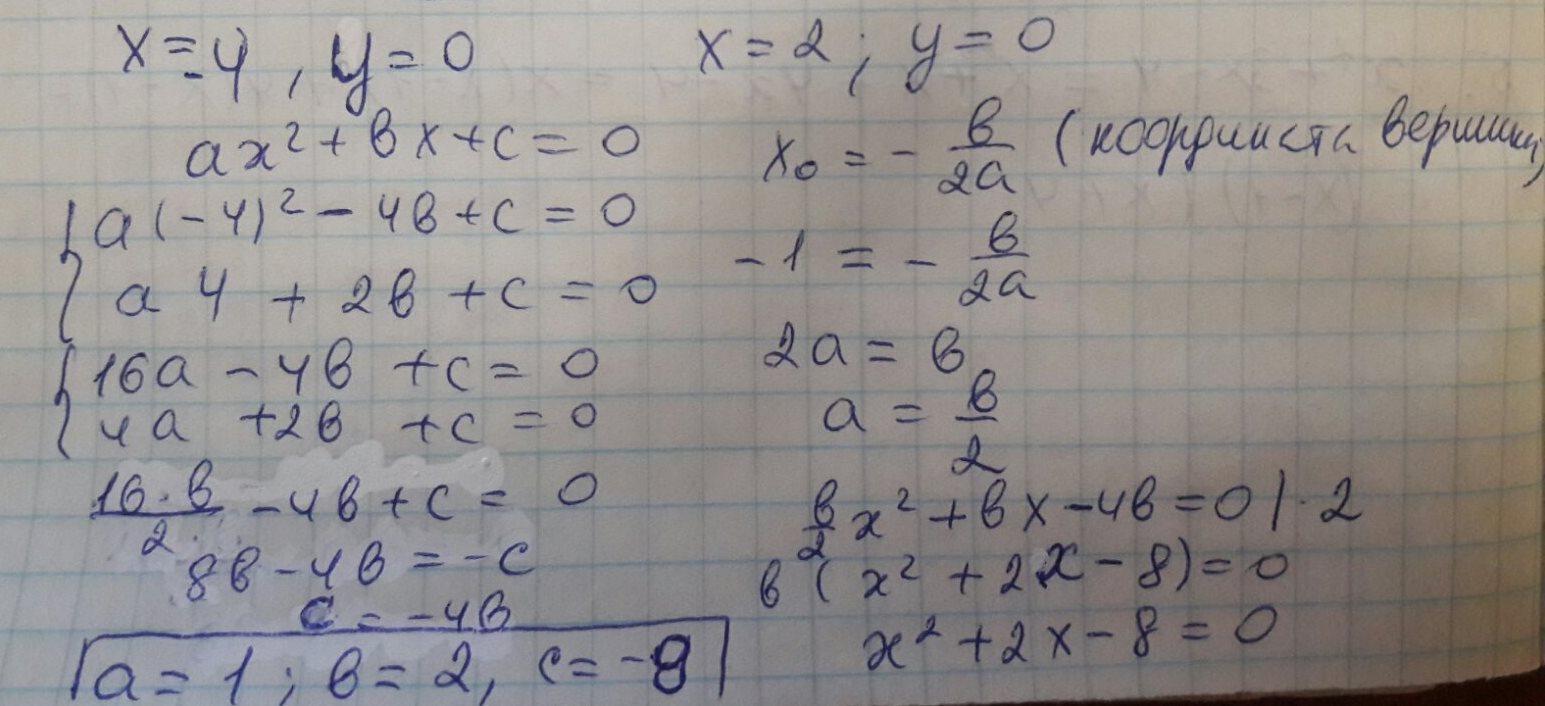 x = -4, y = 0
ax² + вx + c = 0
a(-4)² - 4в + c = 0
a 4 + 2в + c = 0
16a - 4в + c = 0
4a + 2в + c = 0
16·в/2 - 4в + c = 0
8в - 4в = -c
c = -4в
a = 1; в = 2, c = -8
x = 2; y = 0
x₀ = - в/2a (координата вершины)
-1 = - в/2a
2a = в
a = в/2
в/2 x² + вx - 4в = 0 | · 2
в (x² + 2x - 8) = 0
x² + 2x - 8 = 0